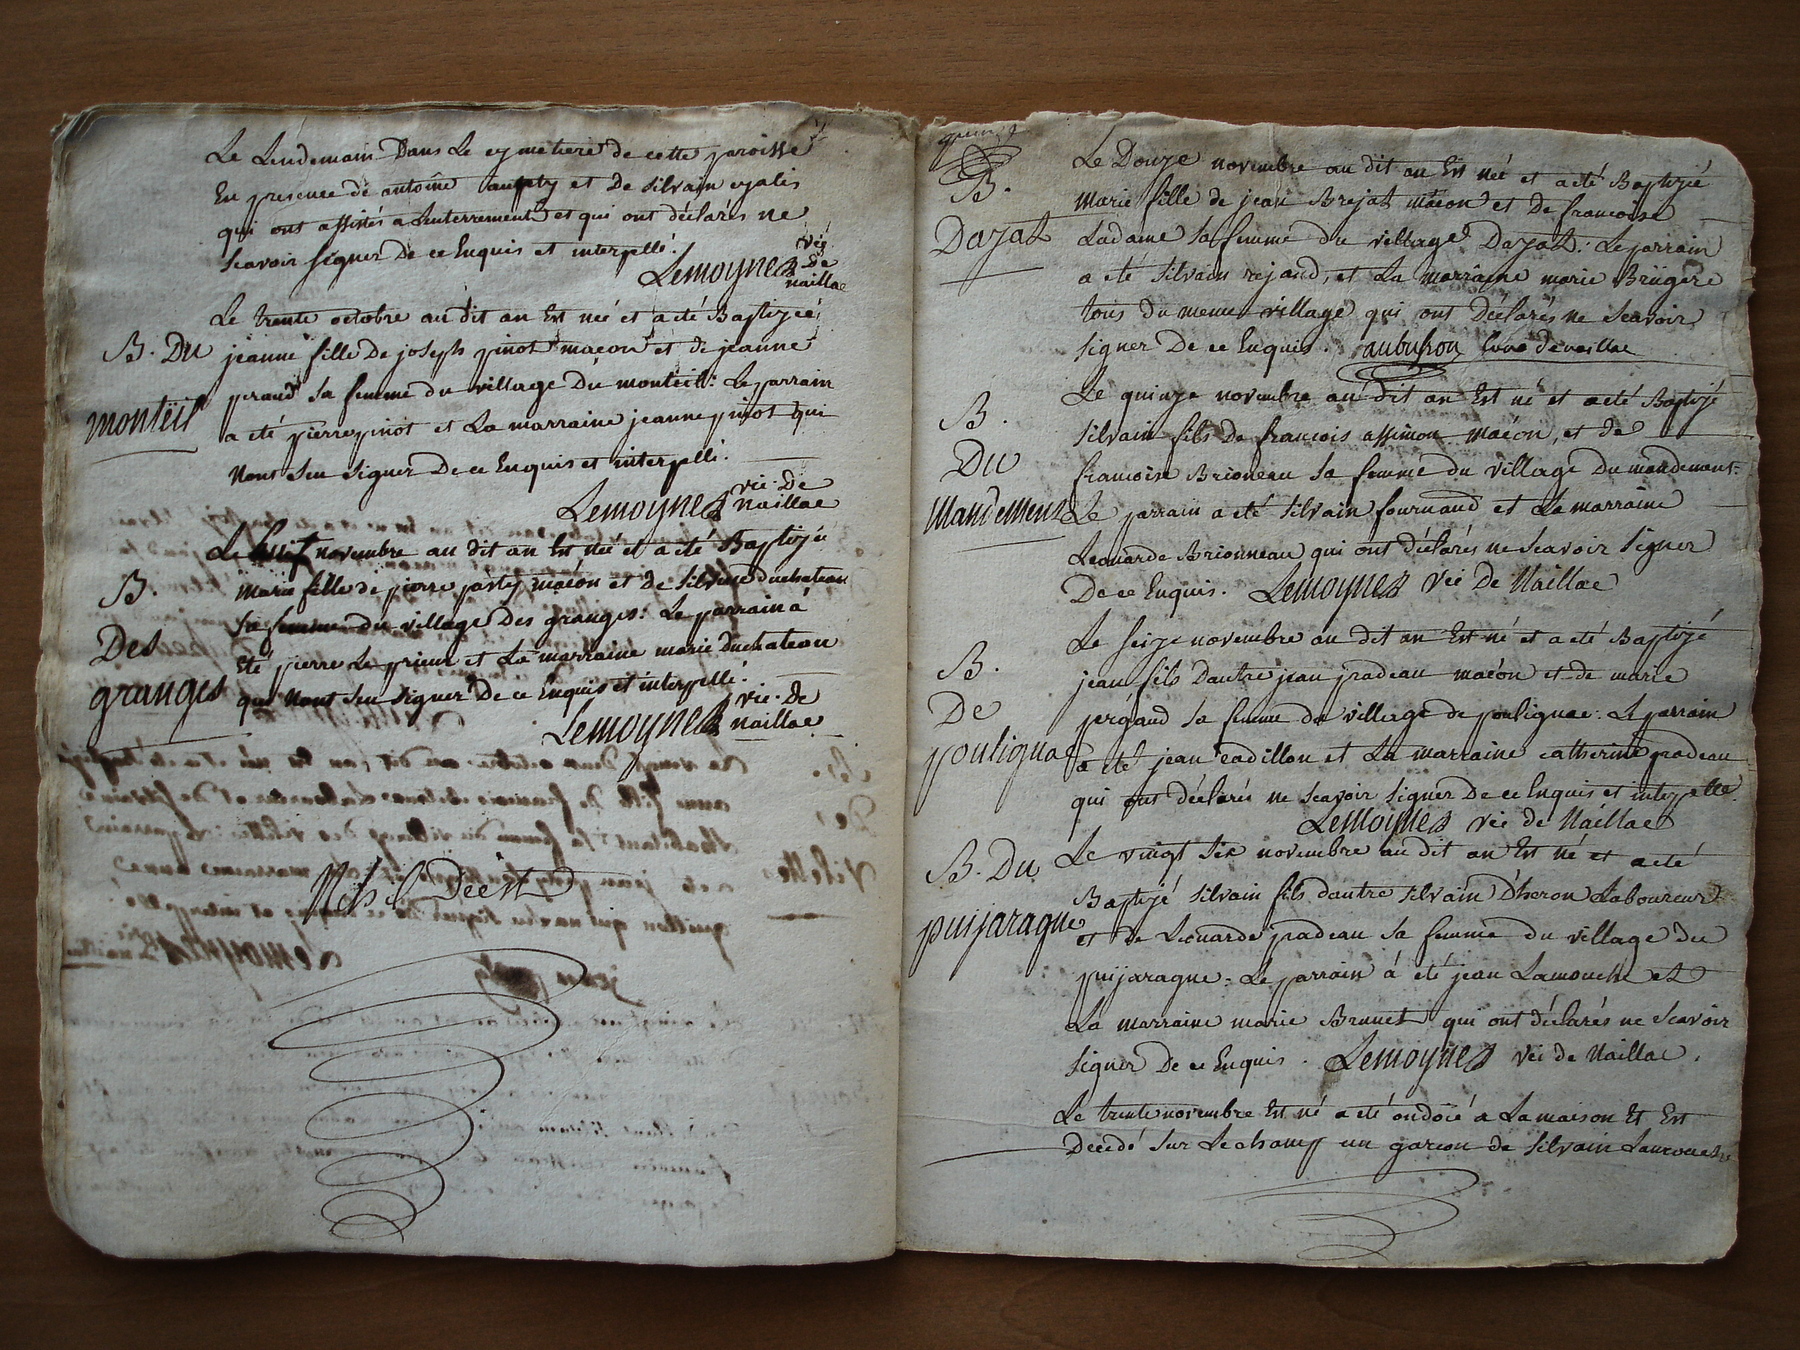 Le Lendemain Dans Le cymetiere de cette paroisse
En presence de antoine aupety et De silvain
qui ont assistés a Lenterrement et qui ont déclarés ne
scavoir signer De ce Enquis et interpellé.
Lemoyne vic de naillac
Le trente octobre au dit an Est née et a eté Baptizeé
B. Du
monteil
jeanne fille De joseph pinot macon et de jeanne
peraud sa femme du village Du monteil: Le parrain
a eté pierre pinot et La marraine jeanne pinot qui
Nont sçu signer De ce Enquis et interpellé.
Lemoyne vic. De naillac
B.
Des
granges
Le sept novembre au dit an Est née et a eté Baptizé
marie fille de pierre party macon et De silvine duchateau
sa femme du village Des granges: Le parrain a
Eté pierre Le prieur et La marraine marie Duchateau
qui Nont sçu signer De ce Enquis et interpellé.
Lemoyne vic. De naillac
Nihil Deest
B.
Dazat
Le Douze novembre au dit an Est née et a eté Baptizéé
marie fille de jean Brejat macon et De francoise
Ladame sa femme du village Dazat: Le parrain
a eté silvain rejaud, et La marraine marie Brugere
tous du meme village qui ont Déclarés ne scavoir
signer De ce Enquis. aubusson curé de naillac
B.
Du
Mandement
Le quinze novembre au dit an Est né et a eté Baptizé
silvain fils De francois assimon macon, et de
francoise Brioneau sa femme du village Du mandement:
Le parrain a eté silvain fournaud et La marraine
Leonarde Brionneau qui ont déclarés ne scavoir signer
De ce Enquis. Lemoyne vic De Naillac
B.
De
poulignac
Le seize novembre au dit an Est né et a eté Baptizé
jean fils Dautre jean pradeau macon et de marie
pergaud sa femme du village de poulignac: Le parrain
a eté jean cadillon et La marraine catherine pradeau
qui ont déclarés ne scavoir signer De ce Enquis et interpellé.
Lemoyne vic de Naillac
B. Du
puijaragne
Le vingt six novembre au dit an Est né et a eté
Baptizé silvain fils dautre silvain D'heron Laboureur
et De Leonarde pradeau sa femme du village du
puijaragne: Le parrain à eté jean Lamouche et
La marraine marie Brunet qui ont déclarés ne scavoir
signer De ce Enquis. Lemoyne vic de Naillac.
Le trente novembre Est né a eté ondoié a La maison Et Est
Decedé sur Lechamp un garcon de silvain